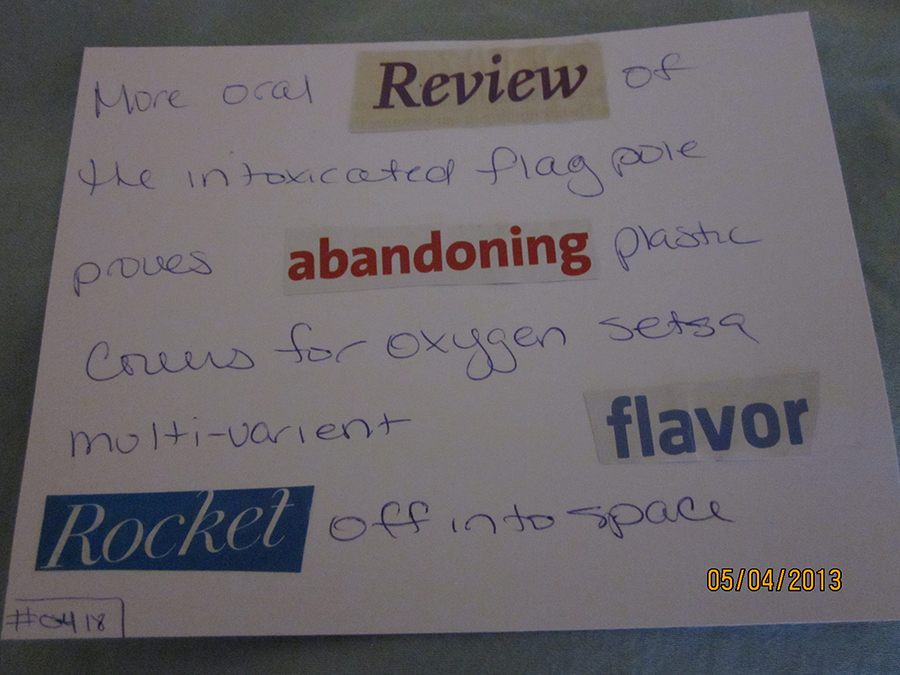 More oral Review of
the intoxicated flag pole
proves abandoning plastic
Covers for oxygen sets a
multi-varient flavor
Rocket off into space
05/04/2013
#0418